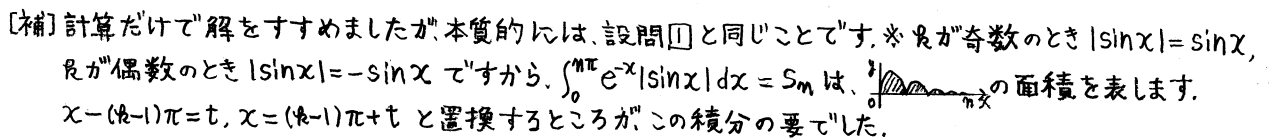 [補]計算だけで解をすすめましたが、本質的には、設問①と同じことです。※kが奇数のとき|sinx|=sinx,
kが偶数のとき|sinx|=-sinx ですから、∫₀ⁿᵖ e⁻ˣ|sinx|dx = Sₙ は、y 0 nπ x の面積を表します.
x-(k-1)π=t, x=(k-1)π+t と置換するところが、この積分の要でした.